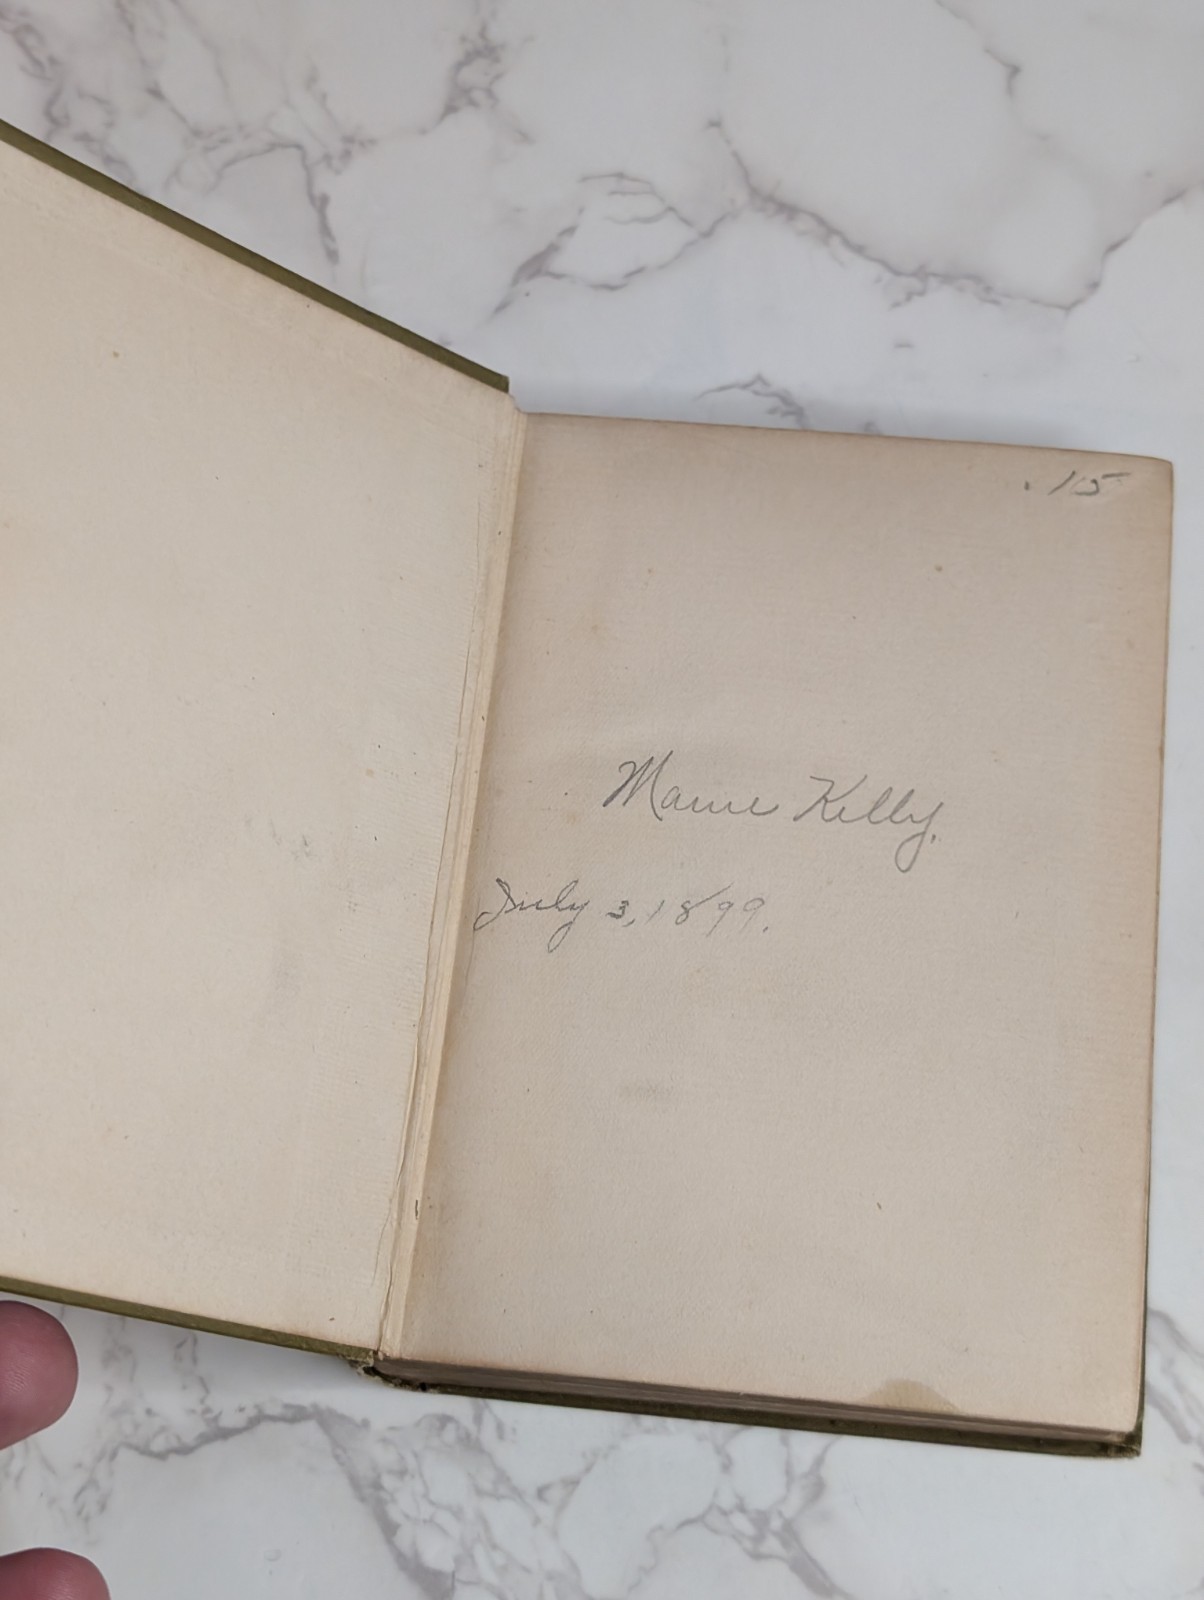 .15
Mamie Kelly.
July 3, 1899.